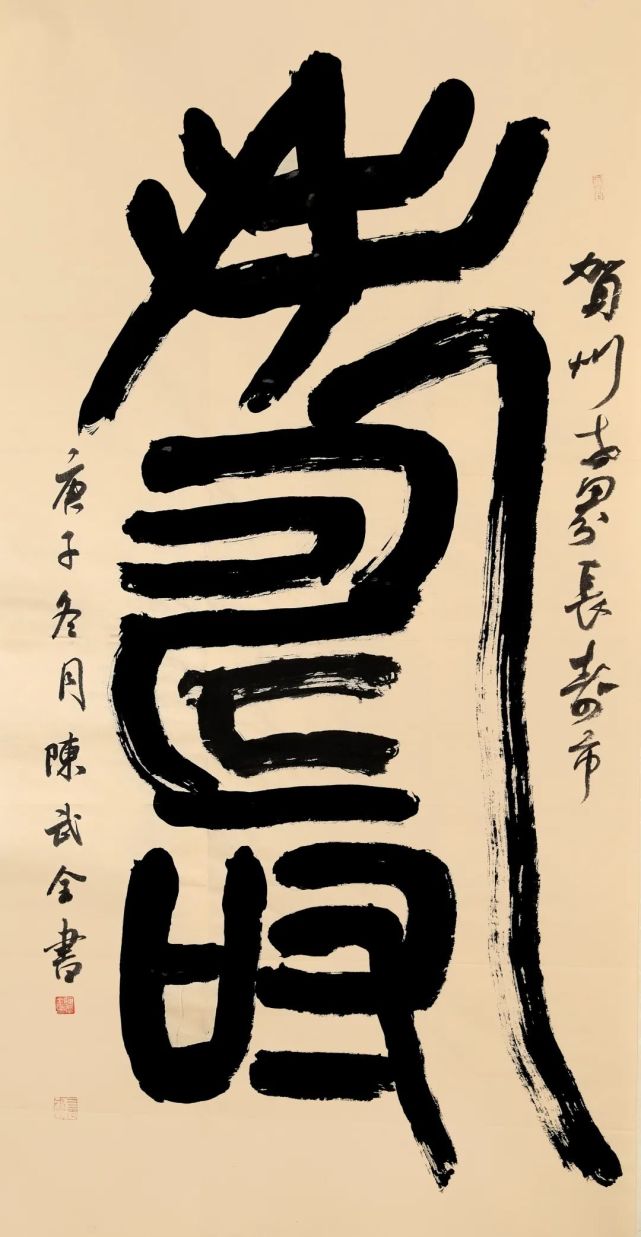 賀州世界長壽市
壽
庚子冬月陳武全書